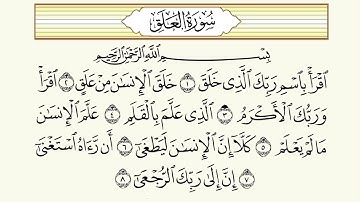 سُورَةُ العَلَقِ
بِسْمِ اللَّهِ الرَّحْمَٰنِ الرَّحِيمِ
اقْرَأْ بِاسْمِ رَبِّكَ الَّذِي خَلَقَ ١ خَلَقَ الْإِنْسَانَ مِنْ عَلَقٍ ٢ اقْرَأْ
وَرَبُّكَ الْأَكْرَمُ ٣ الَّذِي عَلَّمَ بِالْقَلَمِ ٤ عَلَّمَ الْإِنْسَانَ
مَا لَمْ يَعْلَمْ ٥ كَلَّا إِنَّ الْإِنْسَانَ لَيَطْغَىٰ ٦ أَن رَّءَاهُ اسْتَغْنَىٰ
٧ إِنَّ إِلَىٰ رَبِّكَ الرُّجْعَىٰ ٨